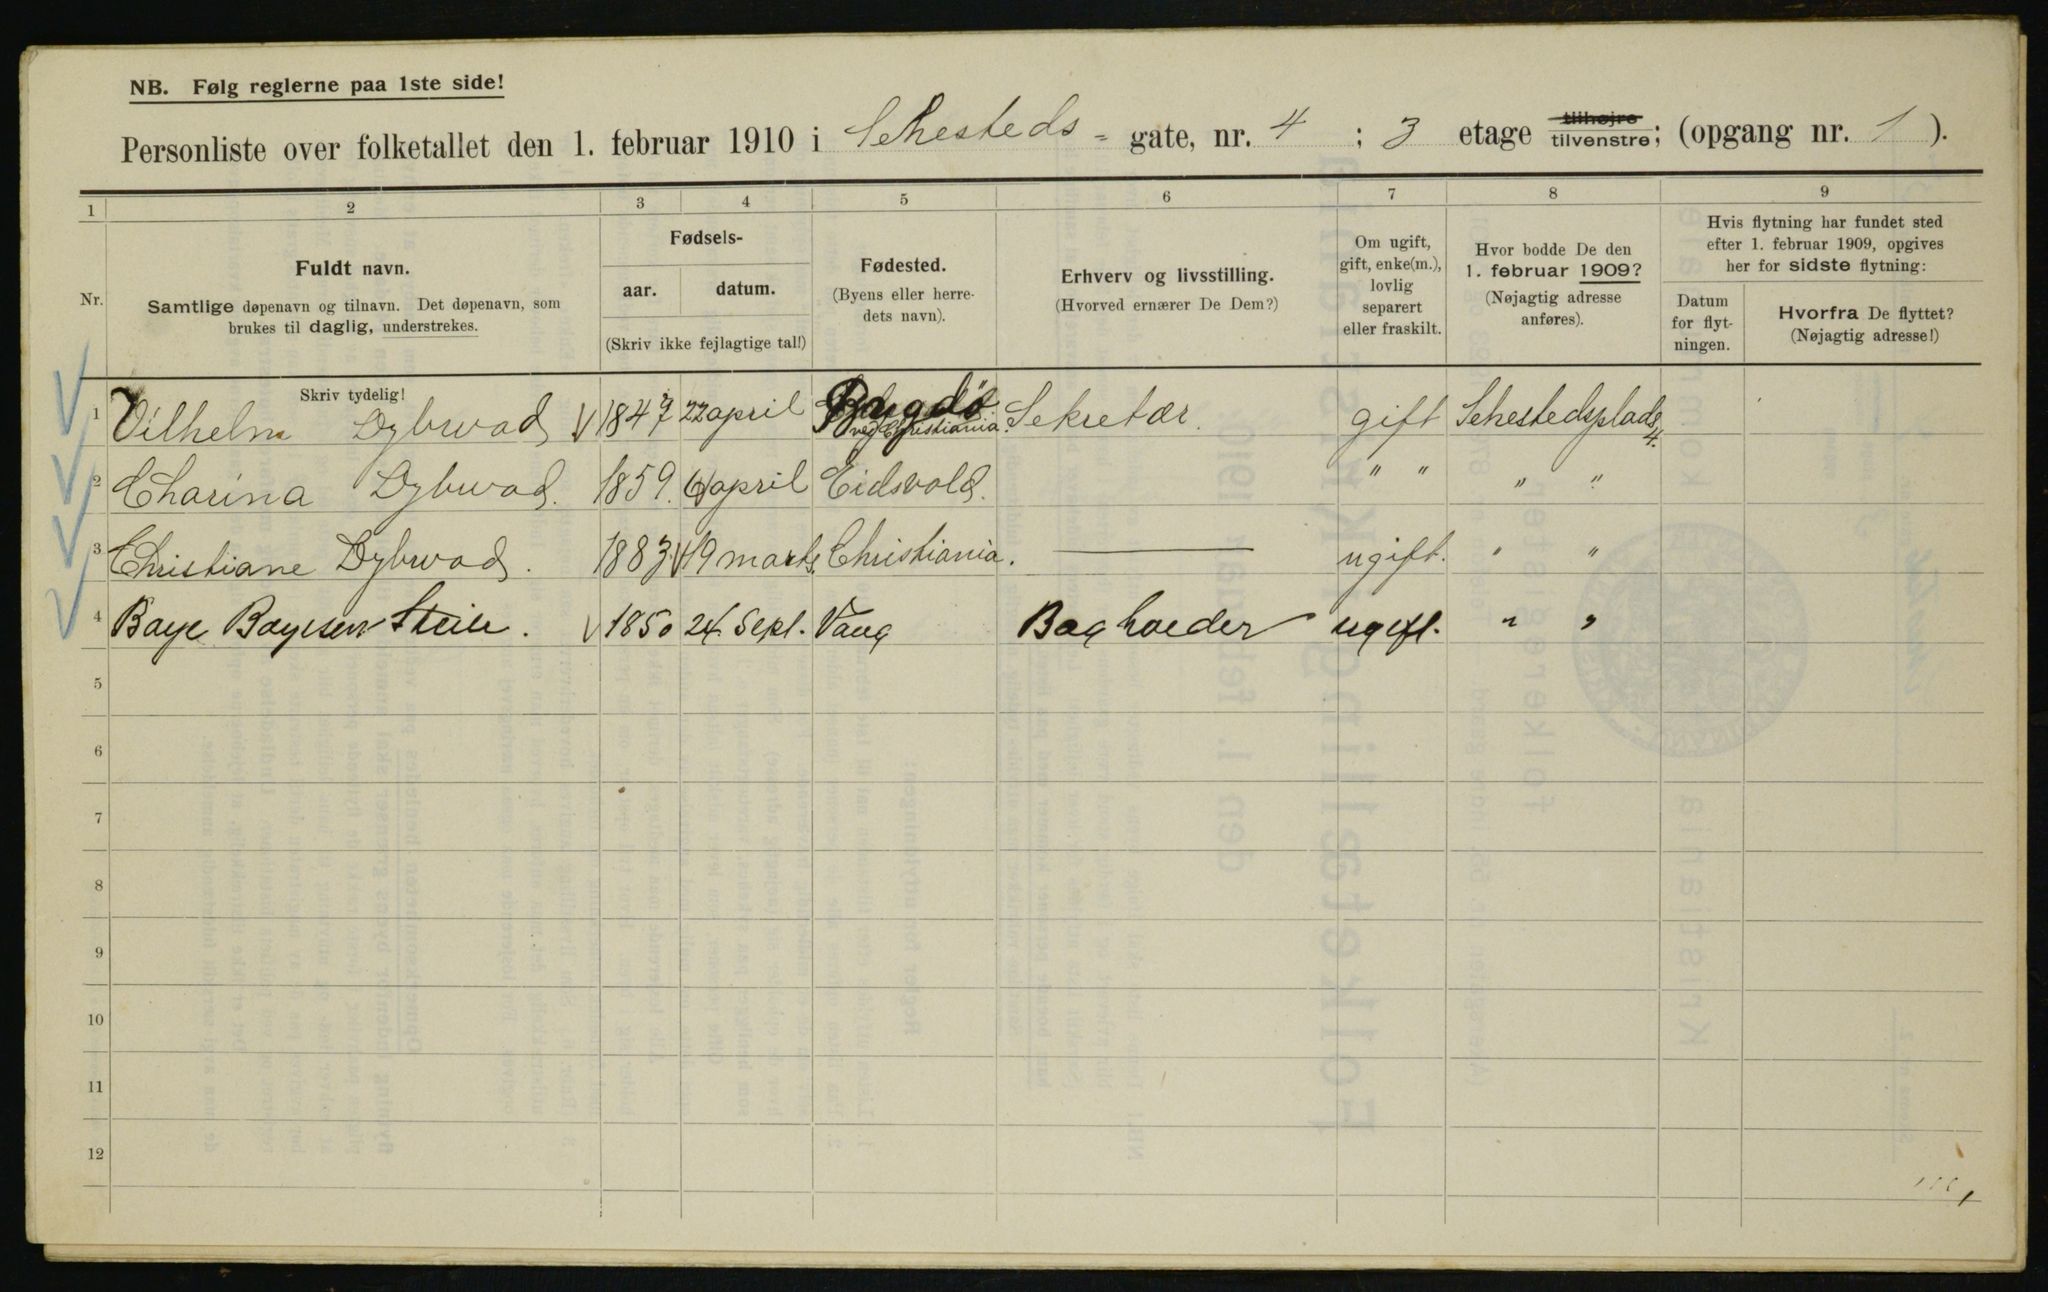 NB. Følg reglerne paa 1ste side!
Personliste over folketallet den 1. februar 1910 i Sehesteds- gate, nr. 4 ; 3 etage tilhøjre tilvenstre; (opgang nr. 1 ).
1 2 3 4 5 6 7 8 9
Nr.
Fuldt navn.
Samtlige døpenavn og tilnavn. Det døpenavn, som
brukes til daglig, understrekes.
Fødsels-
aar. datum.
(Skriv ikke fejlagtige tal!)
Fødested.
(Byens eller herre-
dets navn).
Erhverv og livsstilling.
(Hvorved ernærer De Dem?)
Om ugift,
gift, enke(m.),
lovlig
separert
eller fraskilt.
Hvor bodde De den
1. februar 1909?
(Nøjagtig adresse
anføres).
Hvis flytning har fundet sted
efter 1. februar 1909, opgives
her for sidste flytning:
Datum
for flyt-
ningen.
Hvorfra De flyttet?
(Nøjagtig adresse!)
Skriv tydelig!
1 Vilhelm Dybwad 1847 22 april Bygdö ved Christiania. Sekretær. gift Sehestedsplads 4.
2 Charina Dybwad. 1859. 6 april Eidsvold. " " " "
3 Christiane Dybwad. 1883 19 marts. Christiania. ugift. " "
4 Baye Boyesen . 1850 24 Sept. Vang Bagholder ugift. " "
5
6
7
8
9
10
11
12